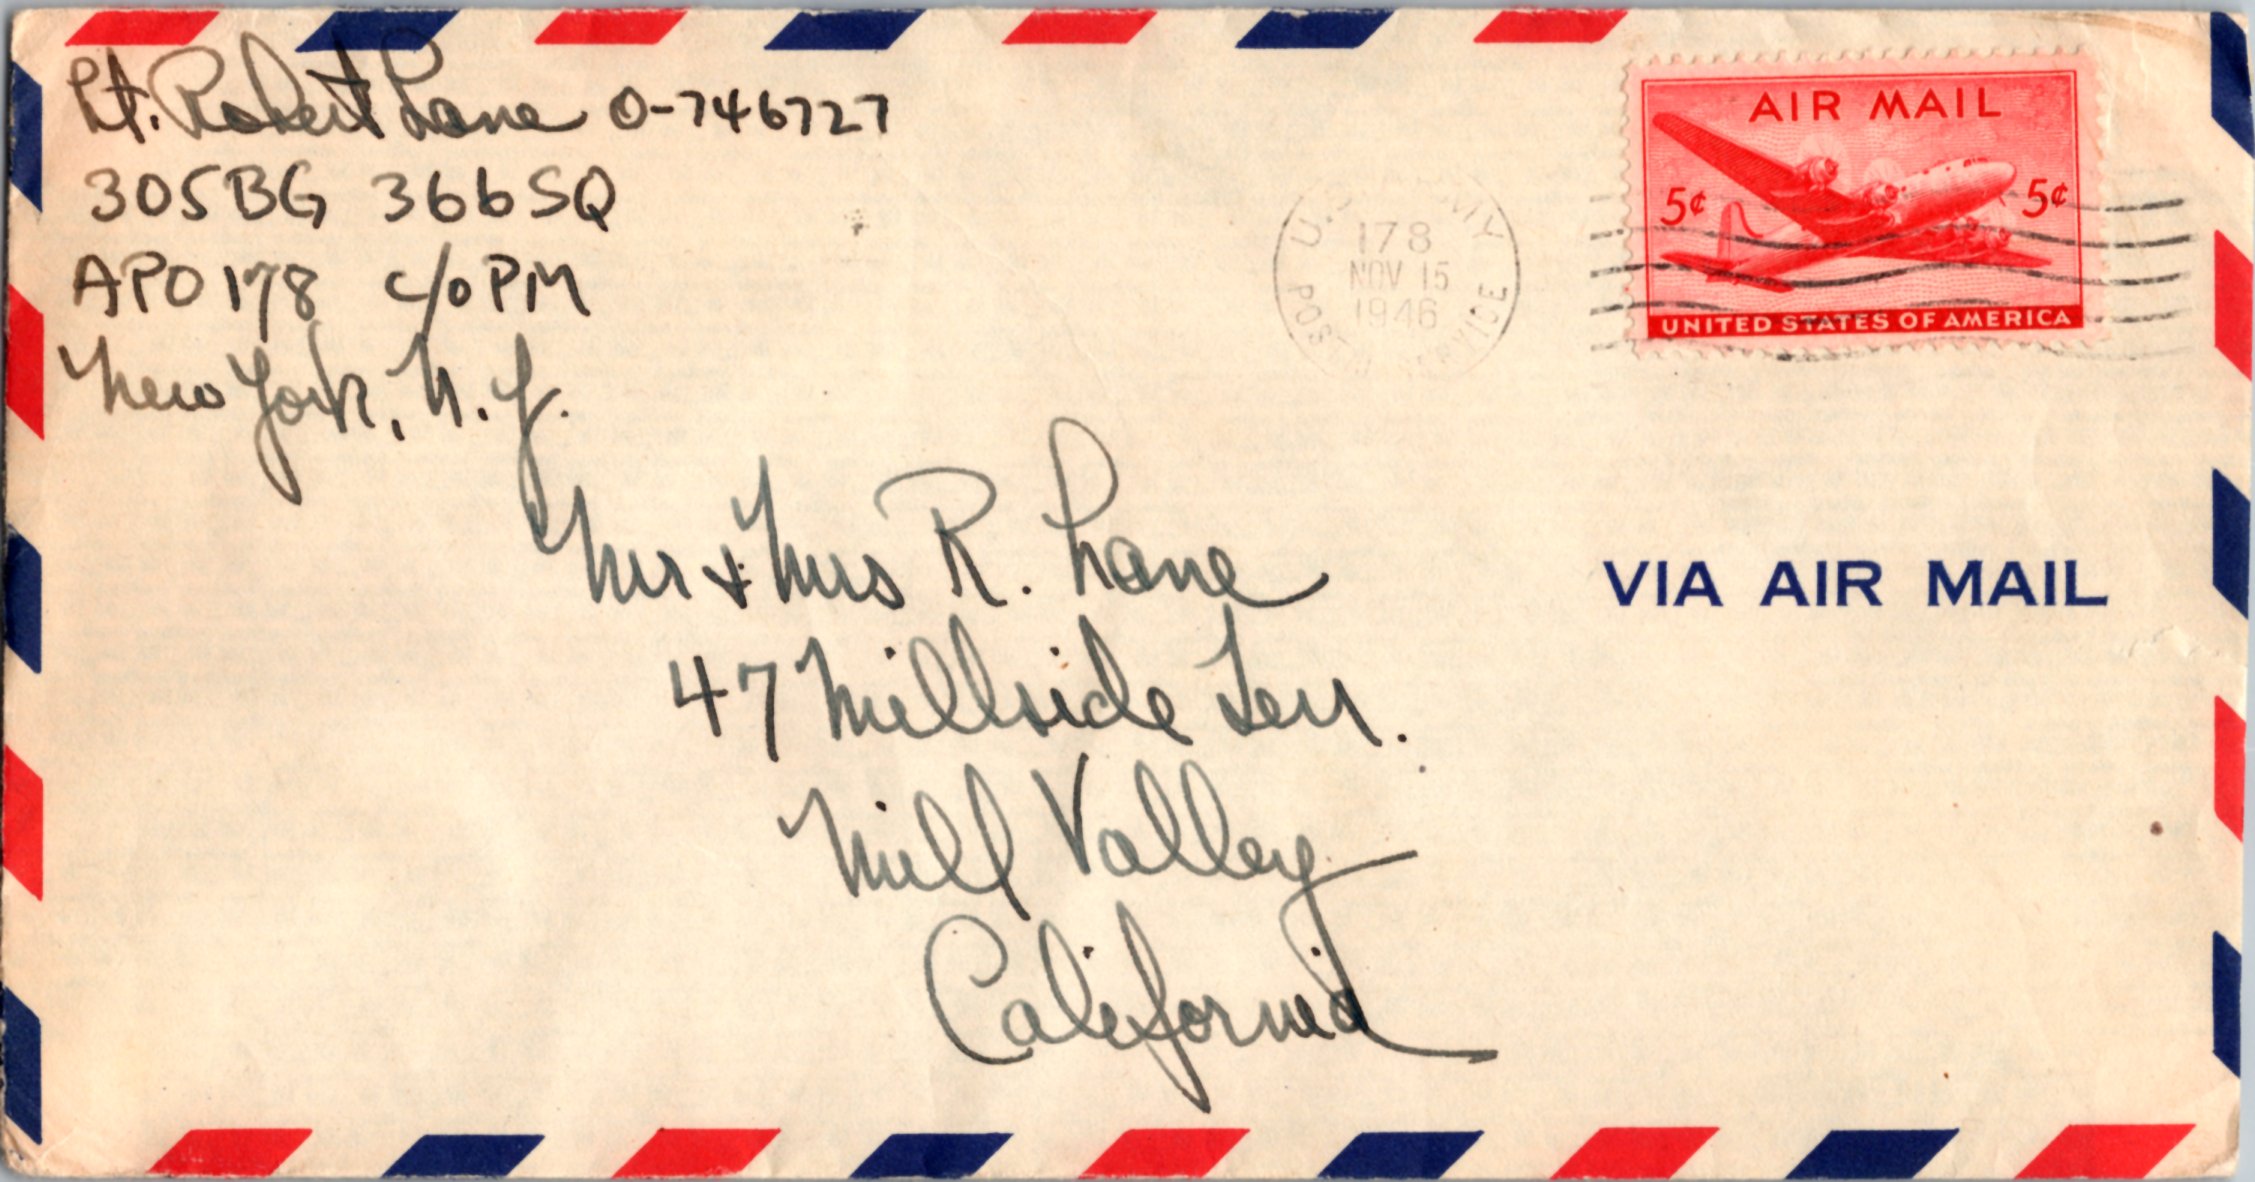 Lt. Robert Lane O-746727
305BG 366SQ
APO 178 c/o PM
New York, N.Y.
U.S. ARMY
178
NOV 15
1946
POSTAL SERVICE
AIR MAIL
5¢ 5¢
UNITED STATES OF AMERICA
Mr & Mrs R. Lane
47 Millside Terr.
Mill Valley
California
VIA AIR MAIL